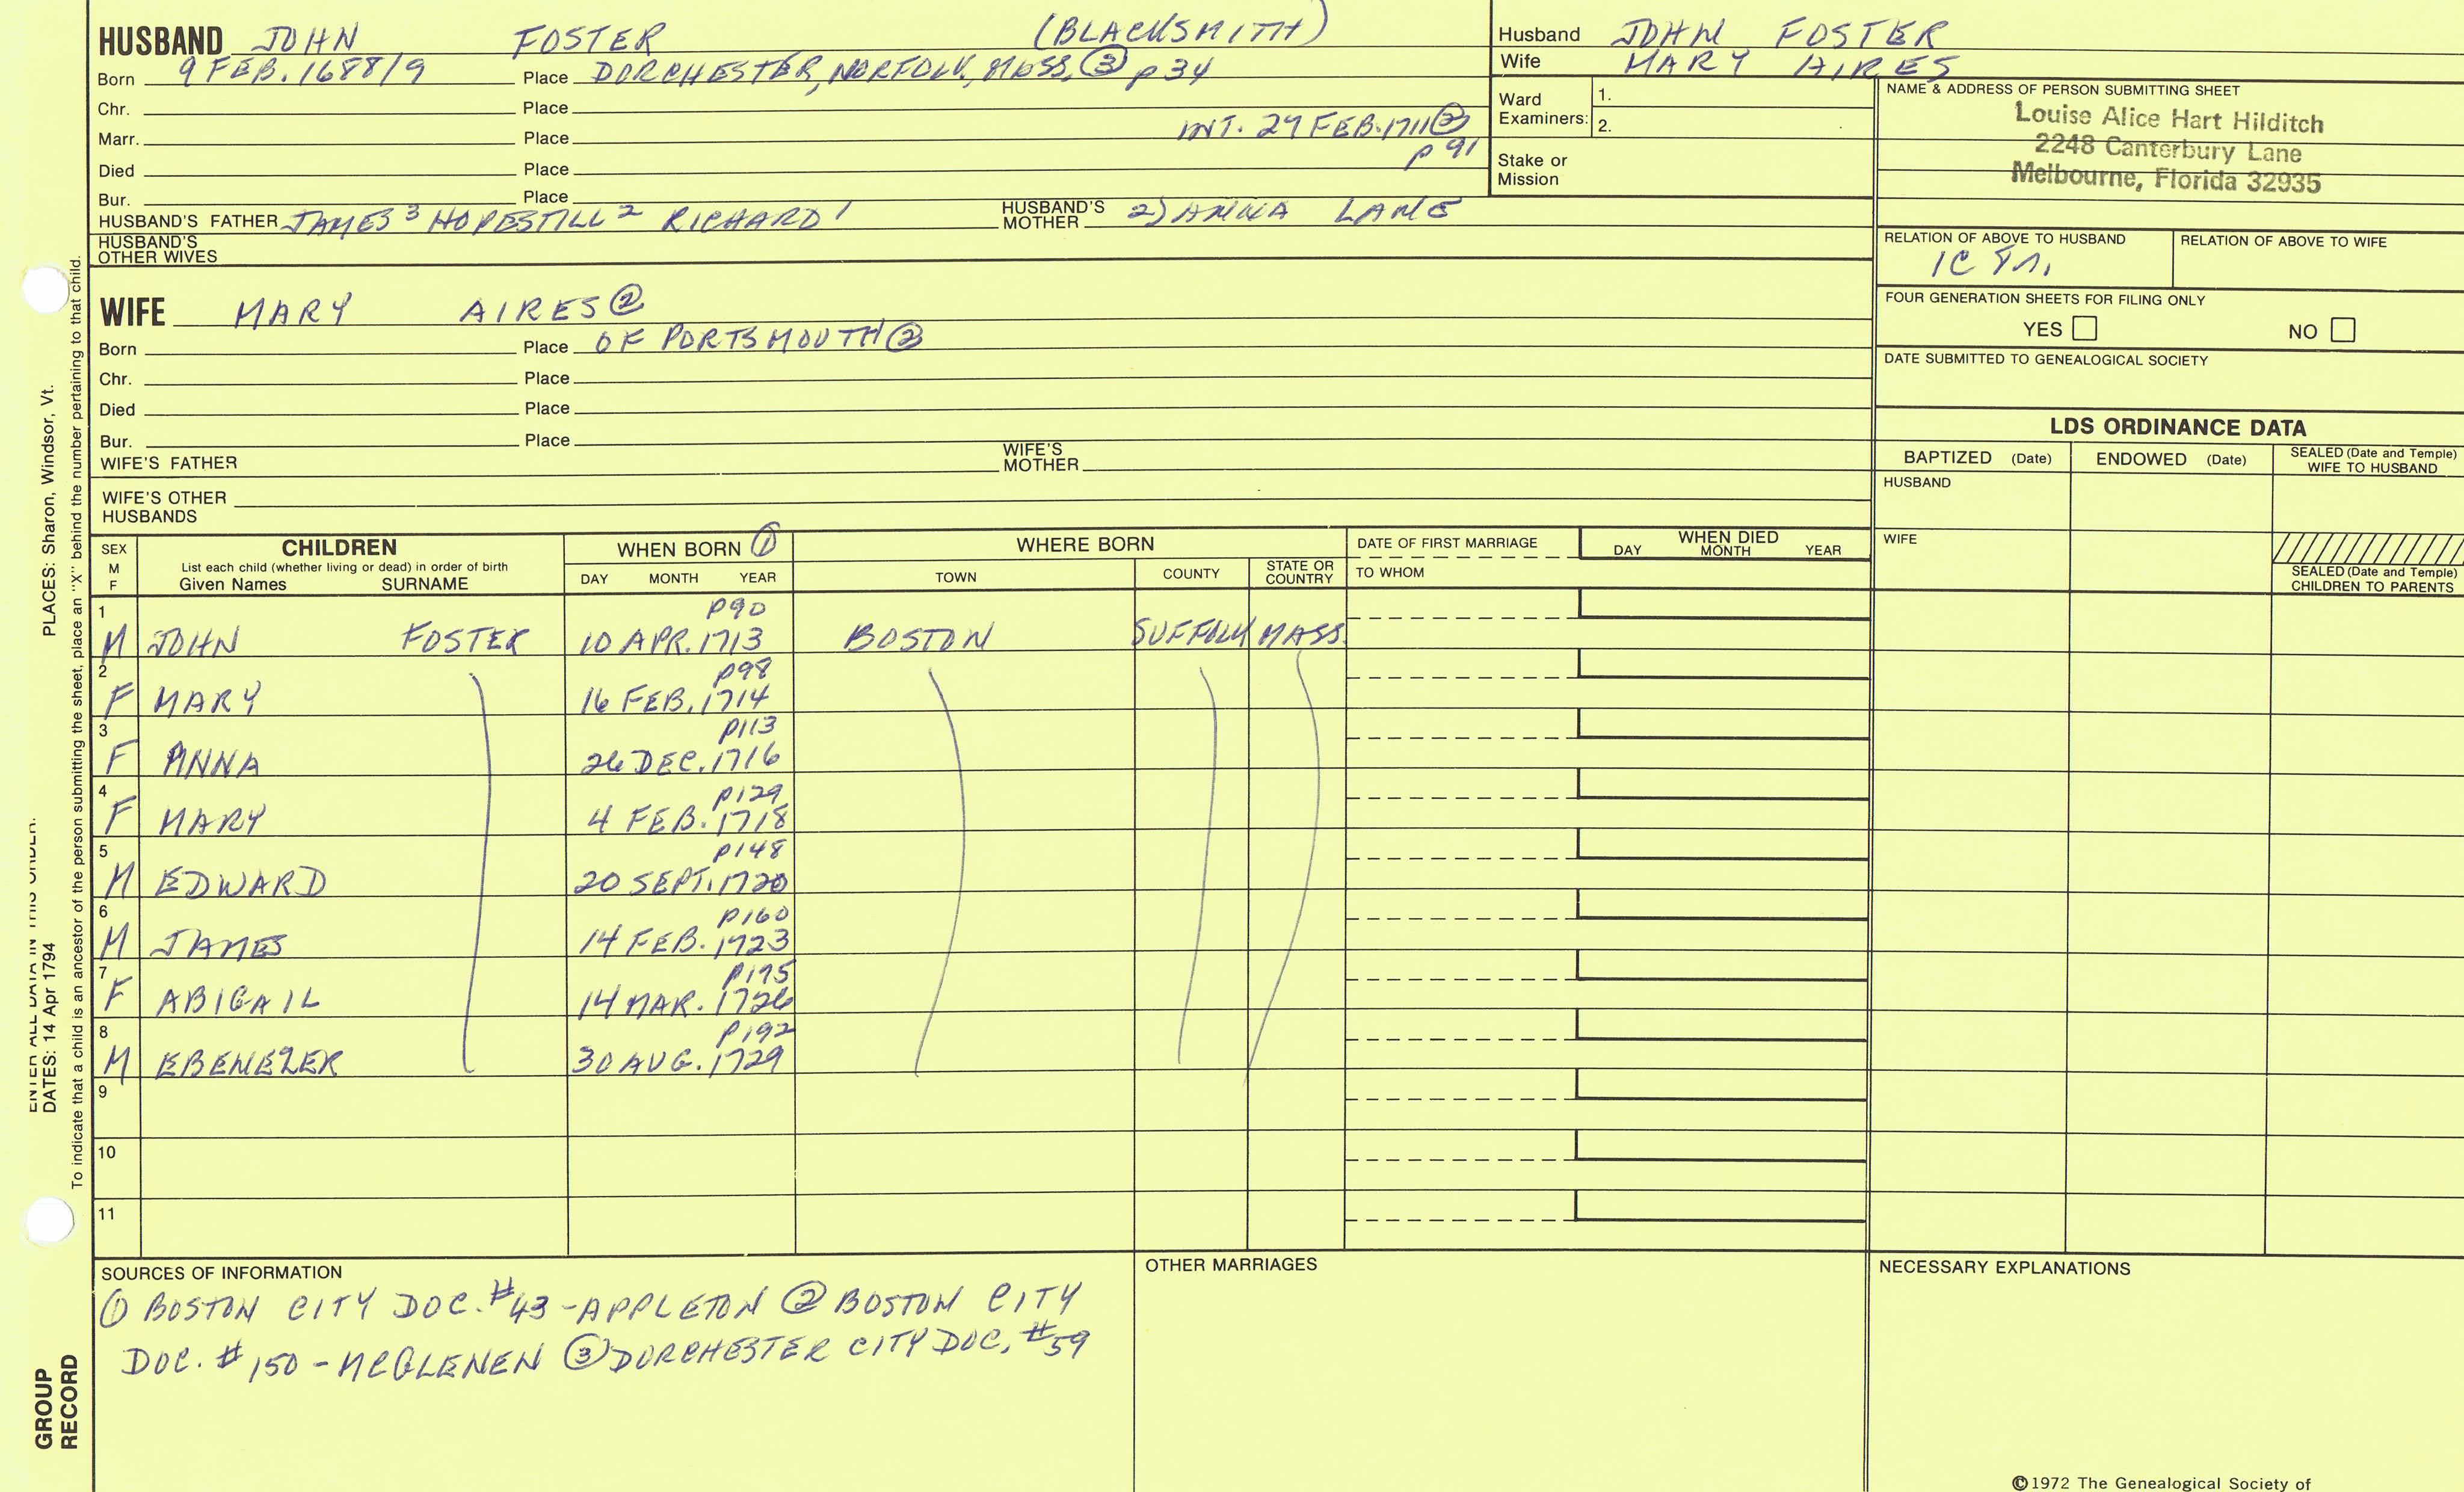 HUSBAND JOHN FOSTER (BLACKSMITH)
Born 9 FEB. 1688/9 Place DORCHESTER, NORFOLK, MASS. ③ p 34
Chr. Place
INT. 29 FEB. 1711 ②
Marr. Place
p 91
Died Place
Bur. Place
HUSBAND'S FATHER JAMES 3 HOPESTILL 2 RICHARD 1 HUSBAND'S MOTHER 2) ANNA LANE
HUSBAND'S OTHER WIVES
WIFE MARY AIRES ②
Born Place OF PORTSMOUTH ②
Chr. Place
Died Place
Bur. Place
WIFE'S FATHER WIFE'S MOTHER
WIFE'S OTHER HUSBANDS
Husband JOHN FOSTER
Wife MARY AIRES
Ward Examiners: 1.
2.
Stake or Mission
NAME & ADDRESS OF PERSON SUBMITTING SHEET
Louise Alice Hart Hilditch
2248 Canterbury Lane
Melbourne, Florida 32935
RELATION OF ABOVE TO HUSBAND RELATION OF ABOVE TO WIFE
FOUR GENERATION SHEETS FOR FILING ONLY
YES NO
DATE SUBMITTED TO GENEALOGICAL SOCIETY
LDS ORDINANCE DATA
BAPTIZED (Date) ENDOWED (Date) SEALED (Date and Temple) WIFE TO HUSBAND
HUSBAND
WIFE
SEALED (Date and Temple) CHILDREN TO PARENTS
SEX M F CHILDREN WHEN BORN ① WHERE BORN DATE OF FIRST MARRIAGE WHEN DIED
List each child (whether living or dead) in order of birth
Given Names SURNAME DAY MONTH YEAR TOWN COUNTY STATE OR COUNTRY TO WHOM DAY MONTH YEAR
1 p90
M JOHN FOSTER 10 APR. 1713 BOSTON SUFFOLK MASS.
2 p98
F MARY 16 FEB. 1714
3 p113
F ANNA 26 DEC. 1716
4 p129
F MARY 4 FEB. 1718
5 p148
M EDWARD 20 SEPT. 1720
6 p160
M JAMES 14 FEB. 1723
7 p175
F ABIGAIL 14 MAR. 1726
8 p192
M EBENEZER 30 AUG. 1729
9
10
11
SOURCES OF INFORMATION
① BOSTON CITY DOC. #43 - APPLETON ② BOSTON CITY
DOC. # 150 - MCGLENEN ③ DORCHESTER CITY DOC. #59
OTHER MARRIAGES
NECESSARY EXPLANATIONS
©1972 The Genealogical Society of
PLACES: Sharon, Windsor, Vt.
ENTER ALL DATA IN THIS ORDER:
DATES: 14 Apr 1794
To indicate that a child is an ancestor of the person submitting the sheet, place an "X" behind the number pertaining to that child.
GROUP
RECORD